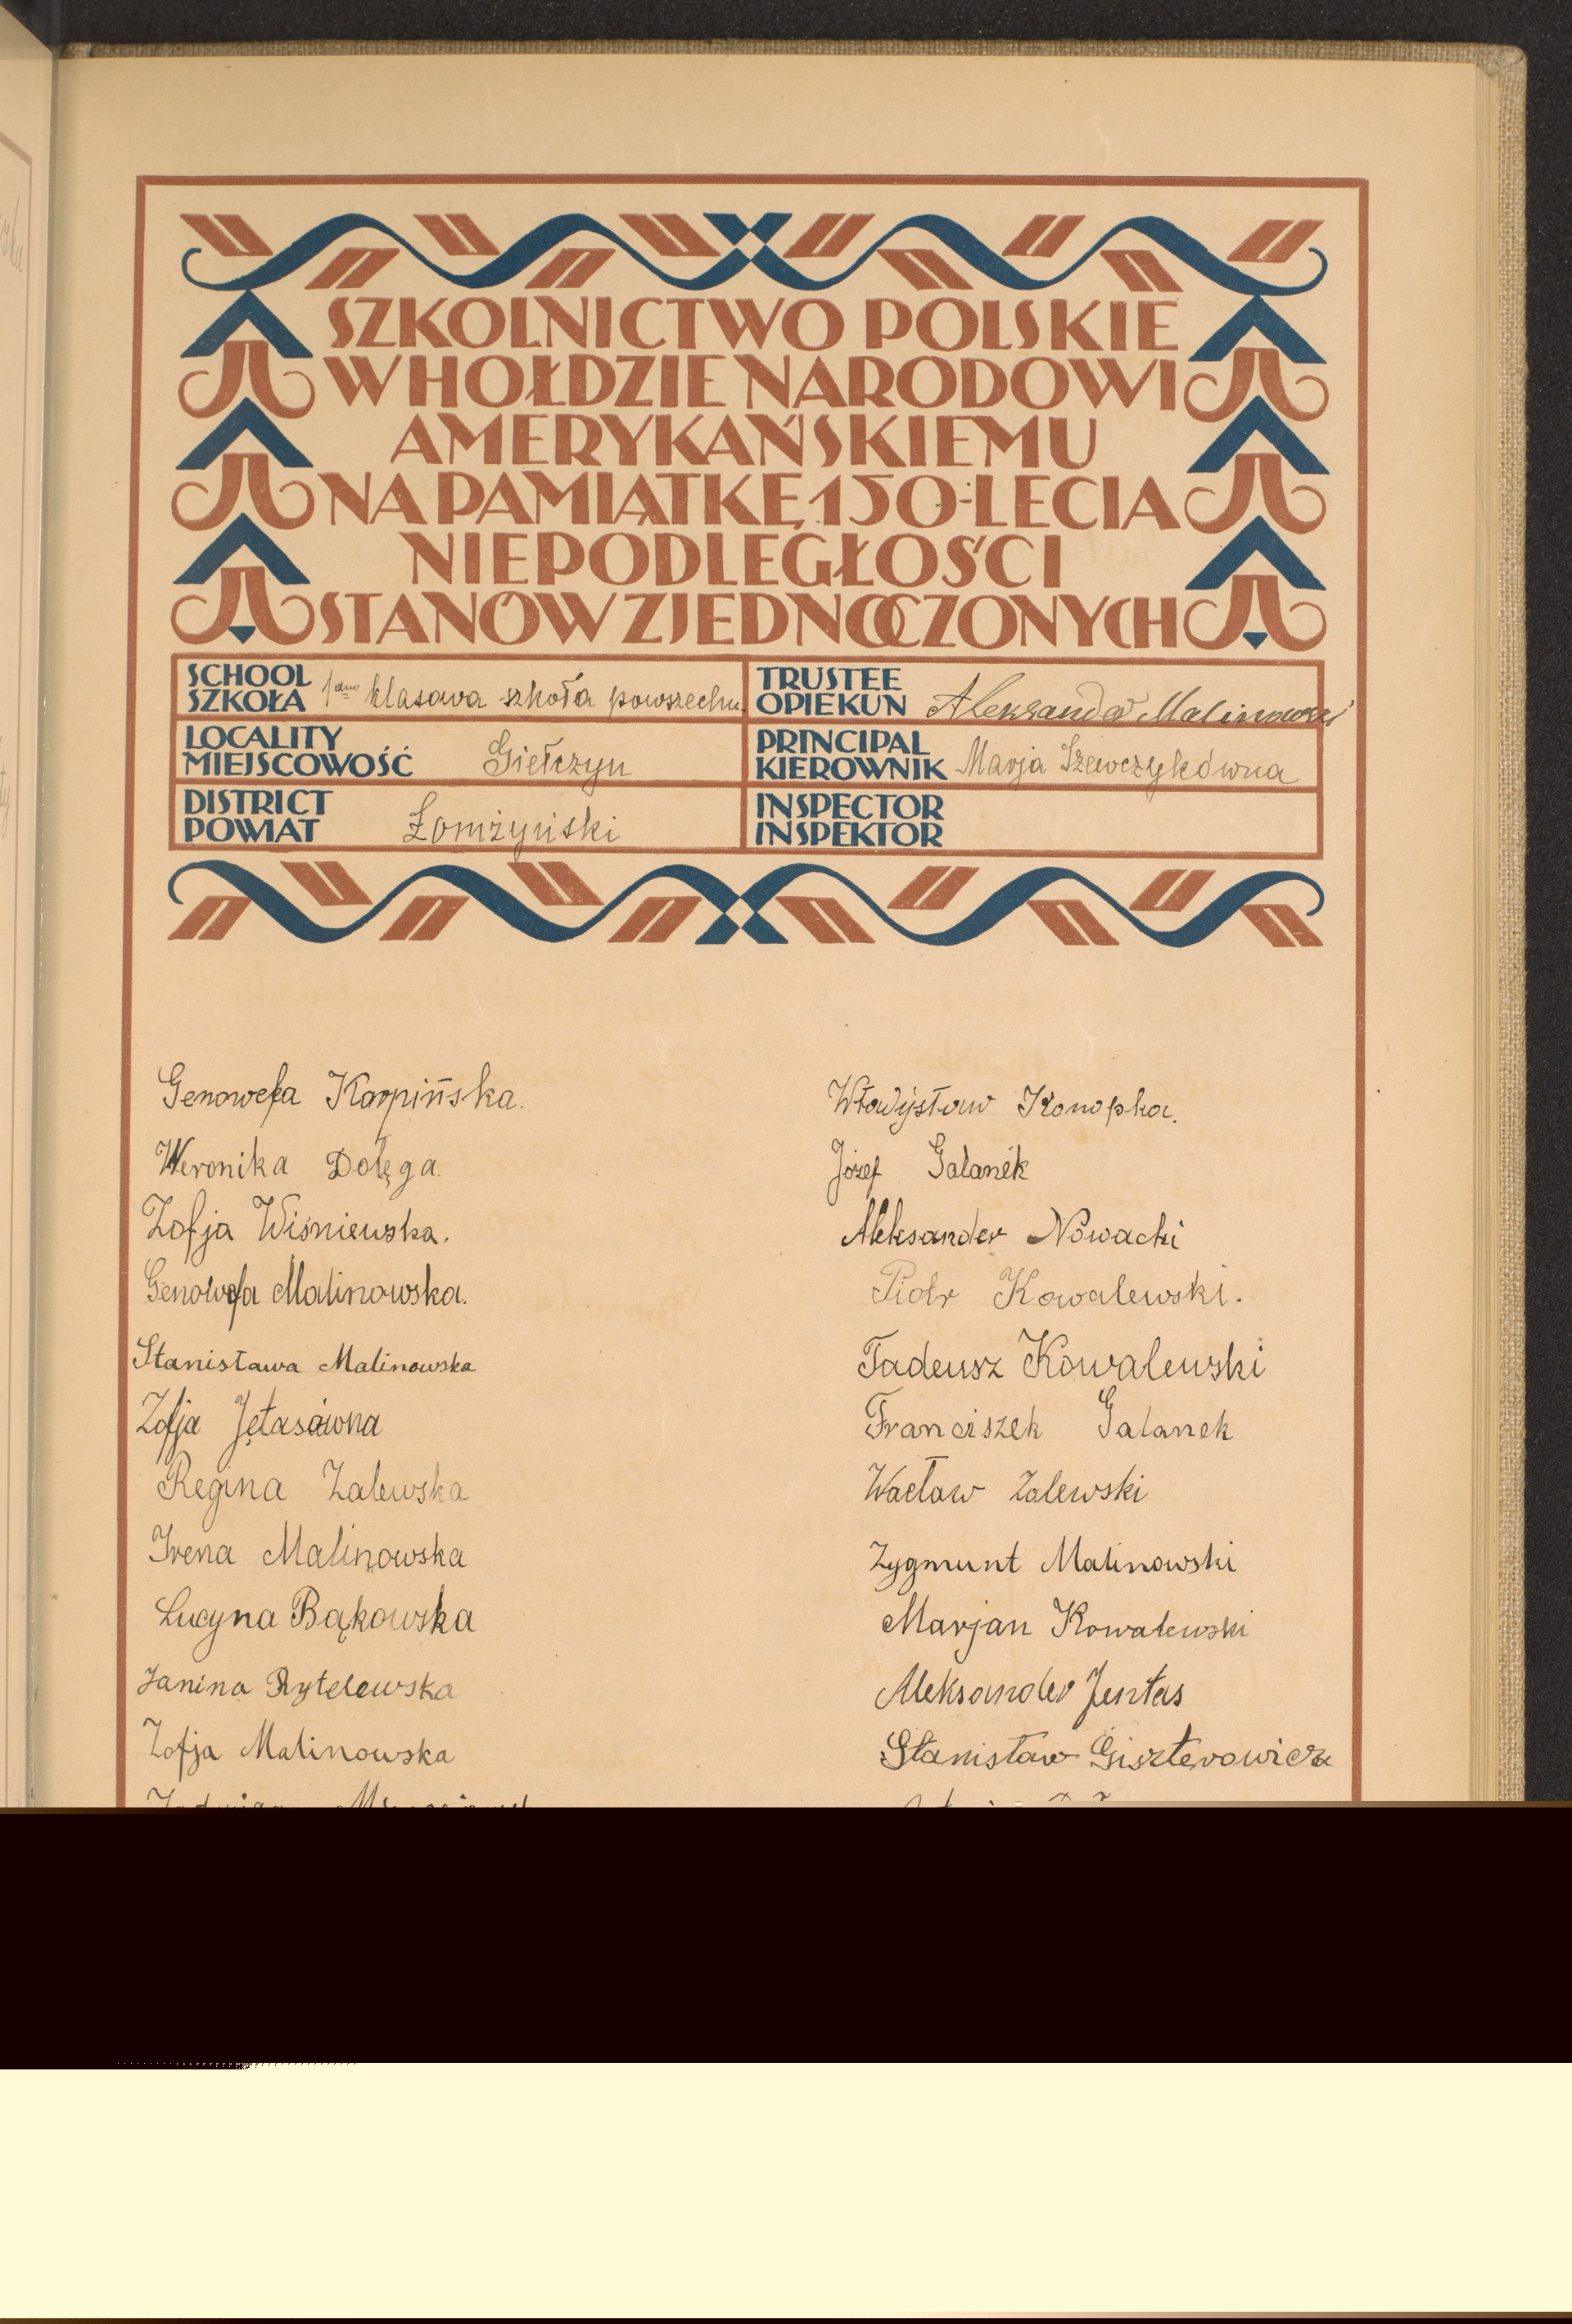 SZKOLNICTWO POLSKIE
W HOŁDZIE NARODOWI
AMERYKAŃSKIEMU
NA PAMIĄTKĘ 150-LECIA
NIEPODLEGŁOŚCI
STANÓW ZJEDNOCZONYCH
SCHOOL
SZKOŁA 1dno klasowa szkoła powszechn.
TRUSTEE
OPIEKUN Aleksander Malinowski
LOCALITY
MIEJSCOWOŚĆ Giełczyn
PRINCIPAL
KIEROWNIK Marja Szewczykówna
DISTRICT
POWIAT Łomżyński
INSPECTOR
INSPEKTOR
Genowefa Karpińska.
Weronika Dołęga.
Zofja Wiśniewska.
Genowefa Malinowska.
Stanisława Malinowska
Zofja Jętasówna
Regina Zalewska
Irena Malinowska
Lucyna Bąkowska
Janina Rytelewska
Zofja Malinowska
Władysław Konopka.
Józef Galanek
Aleksander Nowacki
Piotr Kowalewski.
Tadeusz Kowalewski
Franciszek Galanek
Wacław Zalewski
Zygmunt Malinowski
Marjan Kowalewski
Aleksander Jentas
Stanisław Giszterowicz